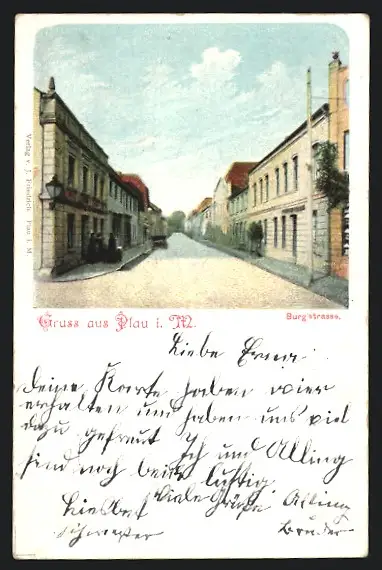 Verlag v. J. Friedrich Plau i. M.
Gruss aus Plau i. M.
Burgstrasse.
Liebe Erna!
deine Karte haben wier
erhalten und haben uns viel
dazu gefreut Ich und Alling
sind noch beide lustig
Viele Grüße
Schwester Bruder